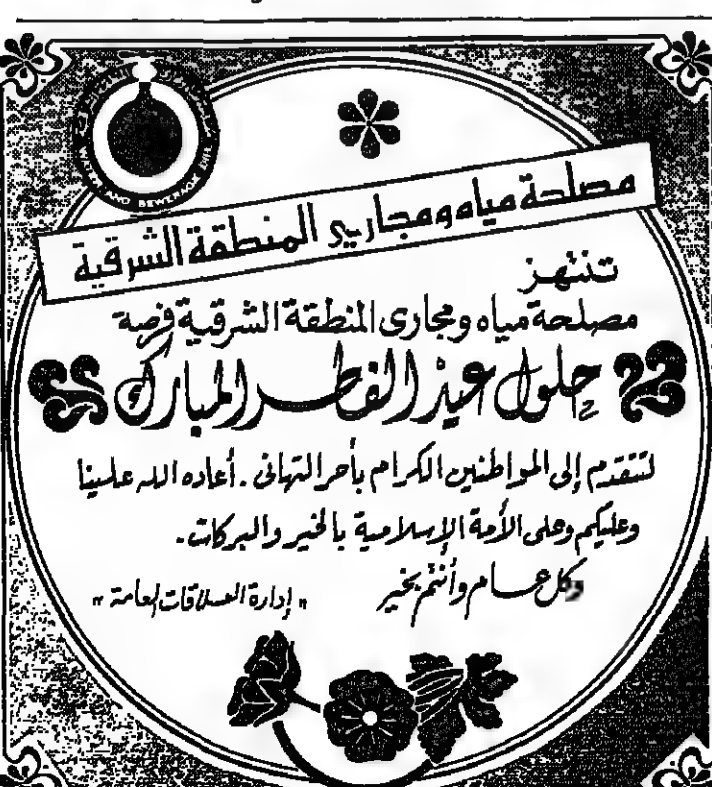 مصلحة مياه ومجاري المنطقة الشرقية
تنتهز
مصلحة مياه ومجارى المنطقة الشرقية فرصة
حلول عيد الفطر المبارك
لتتقدم إلى المواطنين الكرام بأحر التهانى . أعاده الله علينا
وعليكم وعلى الأمة الإسلامية بالخير والبركات .
وكل عام وأنتم بخير
" إدارة العلاقات العامة "